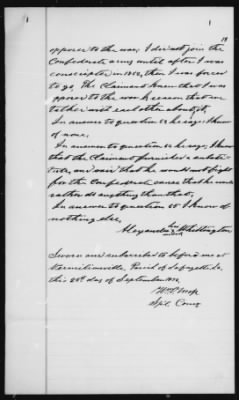 1
1
18
opposed to the war, I did not join the
Confederate army until after I was
conscripted in 1862, then I was forced
to go. The Claimant knew that I was
opposed to the war &c reason that we
talked with each other about it,
In answer to question 52 he says: I know
of none,
In answer to question 62 he says, I know
that the Claimant furnished a substi-
tute, and said that he would not fight
for the Confederate cause that he would
rather do anything than that,
In answer to question 65 I know of
nothing else,
Alexander his Whittington
mark
Sworn and subscribed to before me at
Vermilionville, Parish of Lafayette La
this 28th day of September 1872
Wm. P. Mop
Spl. Comr